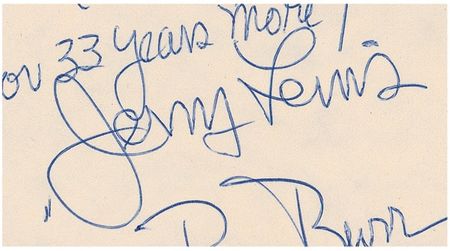 or 33 years more!
Jerry Lewis